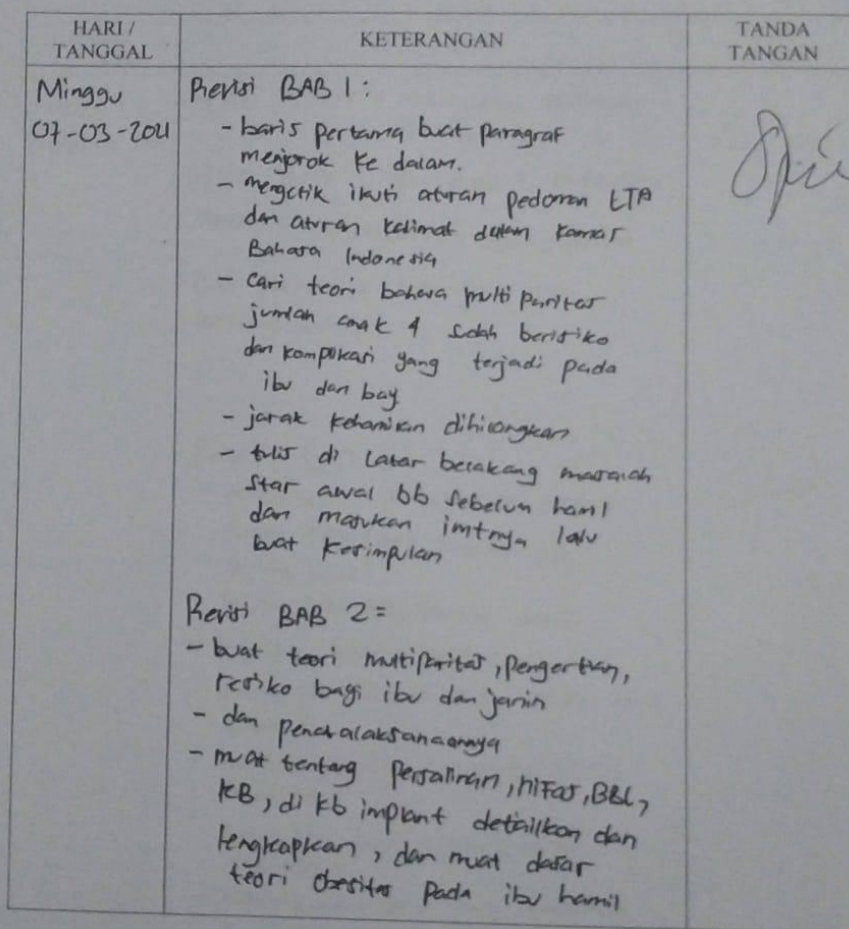 HARI /
TANGGAL
KETERANGAN
TANDA
TANGAN
Minggu
07-03-2021
Revisi BAB 1:
- baris pertama buat paragraf
menjorok ke dalam.
- mengetik ikuti aturan pedoman LTA
dan aturan kalimat dalam kamus
Bahasa Indonesia
- Cari teori bahwa multi paritas
jumlah anak 4 sudah berisiko
dan komplikasi yang terjadi pada
ibu dan bay
- jarak kehamilan dihilangkan
- tulis di latar belakang masalah
Star awal bb sebelum hamil
dan masukan imtnya lalu
buat kesimpulan
Revisi BAB 2=
- buat teori multiparitas, pengertian,
resiko bagi ibu dan janin
- dan penatalaksanaannya
- muat tentang persalinan, nifas, BBL,
KB, di kb implant detailkan dan
lengkapkan, dan muat dasar
teori obesitas pada ibu hamil